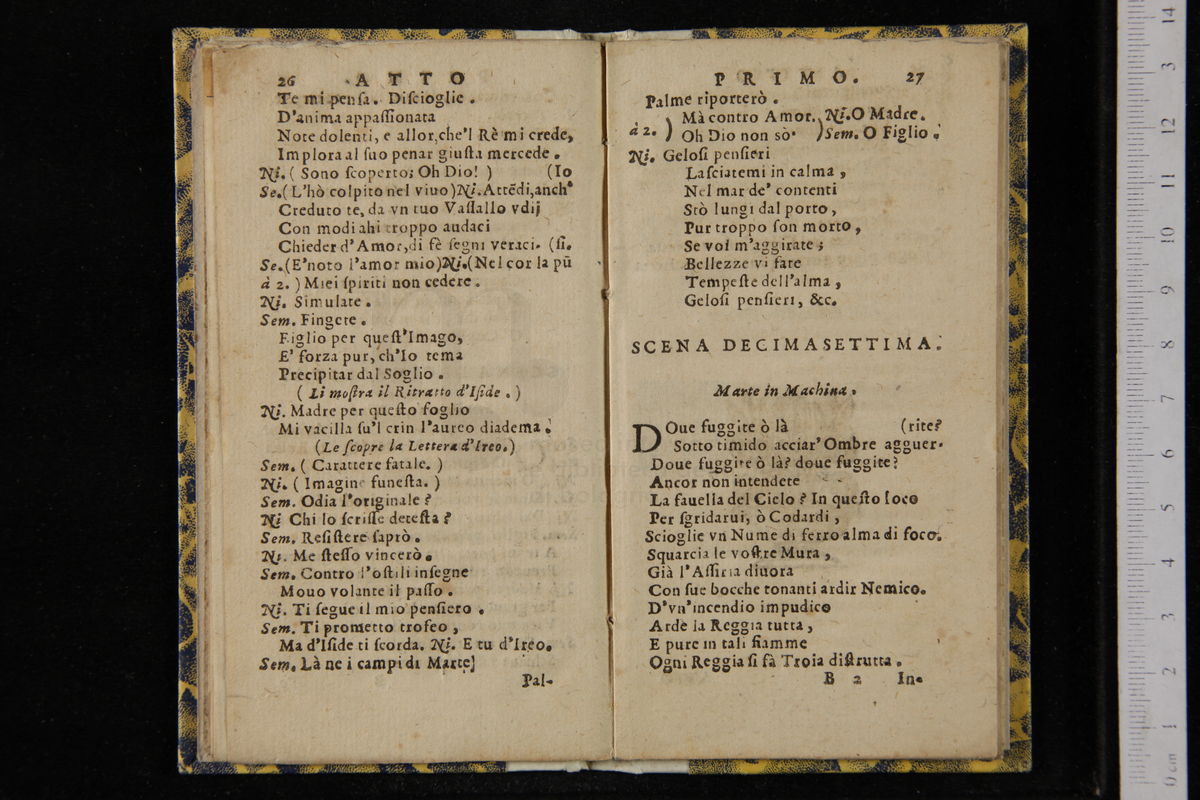 26 ATTO
Te mi pensa. Discioglie.
D'anima appassionata
Note dolenti, e allor, che'l Rè mi crede,
Implora al suo penar giusta mercede.
Ni. ( Sono scoperto; Oh Dio! ) (Io
Se. (L'hò colpito nel viuo) Ni. Attẽdi, anch'
Creduto te, da vn tuo Vassallo vdij
Con modi ahi troppo audaci
Chieder d'Amor, di fè segni veraci. (si.
Se. (E'noto l'amor mio) Ni. (Nel cor la pũ
à 2. ) Miei spiriti non cedere.
Ni. Simulate.
Sem. Fingete.
Figlio per quest'Imago,
E' forza pur, ch'Io tema
Precipitar dal Soglio.
( Li mostra il Ritratto d'Iside. )
Ni. Madre per questo foglio
Mi vacilla su'l crin l'aureo diadema.
(Le scopre la Lettera d'Ireo.)
Sem. ( Carattere fatale. )
Ni. ( Imagine funesta. )
Sem. Odia l'originale?
Ni Chi lo scrisse detesta?
Sem. Resistere saprò.
Ni. Me stesso vincerò.
Sem. Contro l'ostili insegne
Mouo volante il passo.
Ni. Ti segue il mio pensiero.
Sem. Ti prometto trofeo,
Ma d'Iside ti scorda. Ni. E tu d'Ireo.
Sem. Là ne i campi di Marte
Pal-
PRIMO. 27
Palme riporterò.
à 2. ) Mà contro Amor. Ni. O Madre.
Oh Dio non sò. ) Sem. O Figlio.
Ni. Gelosi pensieri
Lasciatemi in calma,
Nel mar de' contenti
Stò lungi dal porto,
Pur troppo son morto,
Se voi m'aggirate;
Bellezze vi fate
Tempeste dell'alma,
Gelosi pensieri, &c.
SCENA DECIMASETTIMA.
Marte in Machina.
DOue fuggite ò là (rite?
Sotto timido acciar' Ombre agguer-
Doue fuggite ò là? doue fuggite?
Ancor non intendete
La fauella del Cielo? In questo loco
Per sgridarui, ò Codardi,
Scioglie vn Nume di ferro alma di foco.
Squarcia le vostre Mura,
Già l'Assiria diuora
Con sue bocche tonanti ardir Nemico.
D'vn'incendio impudico
Arde la Reggia tutta,
E pure in tali fiamme
Ogni Reggia si fà Troia distrutta.
B 2 In-
0 cm 1 2 3 4 5 6 7 8 9 10 11 12 3 14